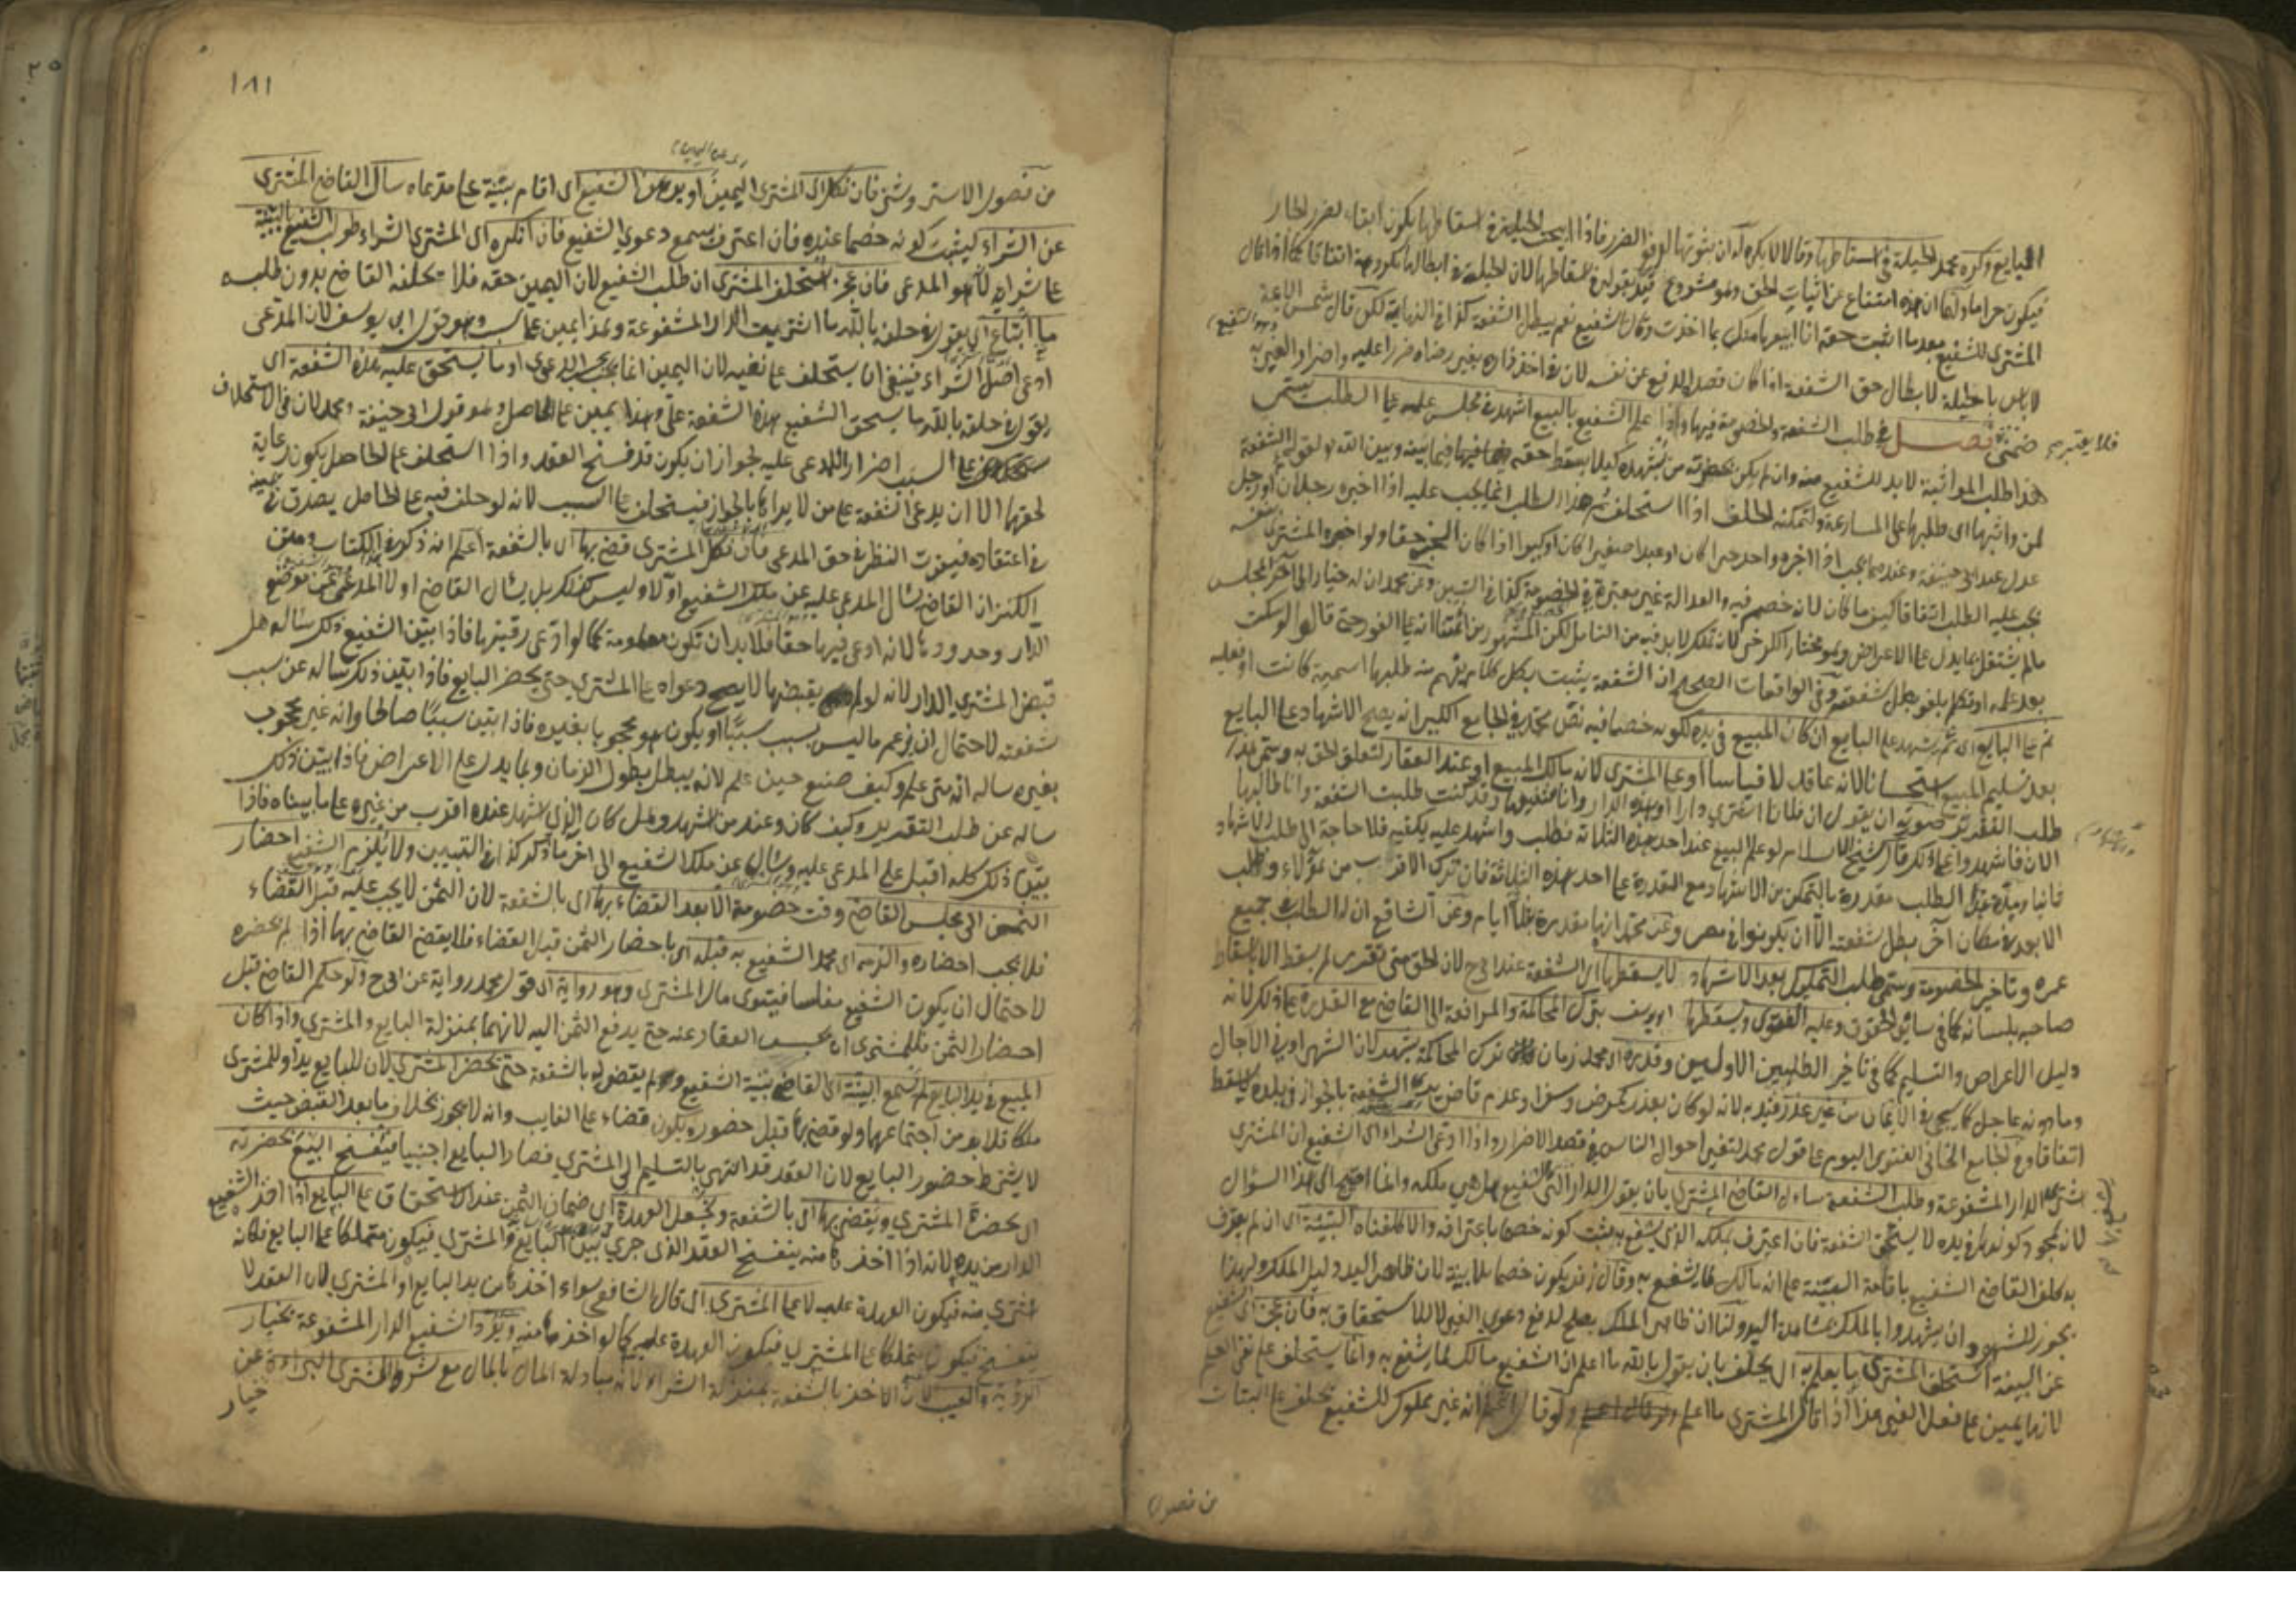 البايع وكره محمد الحيلة في اسقاطها وقالا لا يكره له ان ثبوتها لدفع الضرر فاذا ابيحت الحيلة في اسقاطها يكون ابقاء لضرر الجار
فيكون حراما ولهما ان هذه امتناع عن اثبات الحق وهو مشروع قيد بقوله في اسقاطها لان الحيلة في ابطالها مكروهة اتفاقا كما اذا قال
المشتري للشفيع بعد ما اثبت حقه انا ابيعها منك بما اخذت وقال الشفيع نعم يبطل الشفعة كذا في النهاية لكن قال شمس الائمة
لا باس بالحيلة لابطال حق الشفعة اذا كان قصد الدفع عن نفسه لان في اخذ داره بغير رضاه ضررا عليه واضرار الغير به
فلا يعتبر
ضمني فصل في طلب الشفعة والخصومة فيها واذا علم الشفيع بالبيع اشهد في مجلس علمه على الطلب يسمى
هذا طلب المواثبة لا بد للشفيع منه وان لم يكن بحضرته من يشهده كيلا يسقط حقه فيما بينه وبين الله لقوله الشفعة
لمن واثبها اي طلبها على المسارعة ولتمكنه الحلف اذا استحلف ثم هذا الطلب انما يجب عليه اذا اخبره رجلان او رجل
عدل عند ابي حنيفة وعندهما يجب اذا اخبره واحد حرا كان او عبدا صغيرا كان او كبيرا اذا كان الخبر حقا ولو اخبره المشتري بنفسه
يجب عليه الطلب اتفاقا كيف ما كان لانه خصم فيه والعدالة غير معتبرة في الخصومة كذا في التبيين وعن محمد ان له خيارا الى آخر المجلس
ما لم يشتغل بما يدل على الاعراض وهو مختار الكرخي لانه تملك لا بد فيه من التامل لكن المشهور من ائمتنا انه على الفور حتى قالوا لو سكت
بعد علمه او تكلم بلغو بطل شفعته وفي الواقعات الصحيح ان الشفعة يثبت بكل كلام يفهم منه طلبها اسمية كانت او فعلية
ثم على البايع اي ثم يشهد على البايع ان كان المبيع في يده لكونه خصما فيه نص محمد في الجامع الكبير انه يصح الاشهاد على البايع
بعد تسليم المبيع استحسانا لانه عاقد لا قياسا او على المشتري لانه مالك المبيع او عند العقار لتعلق الحق به ويسمى هذا
طلب التقرير صورته ان يقول ان فلانا اشترى دارا او هذه الدار وانا شفيعها وقد كنت طلبت الشفعة وانا طالبها
الآن فاشهدوا على ذلك قال شيخ الاسلام لو علم البيع عند احد هذه الثلاثة فطلب واشهد عليه يكفيه فلا حاجة الى طلب الاشهاد
ثانيا ومدة هذا الطلب مقدرة بالتمكن من الاشهاد مع القدرة على احد هذه الثلاثة فان ترك الاقرب من هؤلاء وطلب
الابعد في مكان آخر بطل شفعته الا ان يكونوا في مصر وعن محمد انها مقدرة بثلاثة ايام وعن الشافعي ان له الطلب في جميع
عمره وتاخير الخصومة ويسمى طلب التمليك بعد الاشهاد لا يسقطها اي الشفعة عند ابي ح لان الحق متى تقرر لم يسقط الا باسقاط
صاحبه بلسانه كما في سائر الحقوق وعليه الفتوى ويسقطها ابو يوسف بترك المحاكمة والمرافعة الى القاضي مع القدرة على ذلك لانه
دليل الاعراض والتسليم كما في تاخير الطلبين الاولين وقدره اي محمد زمان ترك المحاكمة بشهر لان الشهر ادنى الآجال
وما دونه عاجل كما يجيء في الايمان من غير عذر قيد به لانه لو كان بعذر كمرض وسفر او عدم قاض يرى الشفعة بالجوار في بلده لا يسقط
اتفاقا وفي الجامع الخاني الفتوى اليوم على قول محمد لتغير احوال الناس في قصد الاضرار واذا ادعى الشراء اي الشفيع ان المشتري
شرى الدار المشفوعة وطلب الشفعة ساءل القاضي المشتري بان يقول الدار التي للشفيع هل هي ملكه وانما احتج الى هذا السؤال
لان بمجرد كونها في يده لا يستحق الشفعة فان اعترف بملكه الذي يشفع به يثبت كونه خصما باعترافه والا كلفناه البينة اي ان لم يعترف
به كلف القاضي الشفيع باقامة البينة على انه مالك لما يشفع به وقال زفر يكون خصما بلا بينة لان ظاهر اليد دليل الملك ولهذا
يجوز للشهود ان يشهدوا بالملك بمشاهدة اليد ولنا ان ظاهر الملك يصلح لدفع دعوى الغير لا للاستحقاق به فان عجز اي الشفيع
عن البينة استحلف المشتري ما يعلم به اي يحلف بان يقول بالله ما اعلم ان الشفيع مالك لما يشفع به وانما يستحلف على نفي العلم
لانها يمين على فعل الغير هذا اذا قال المشتري ما اعلم ولو قال اعلم انه غير مملوك للشفيع يحلف على البتات
من فصول
١٨١
من فصول الاستروشني فان نكل اي المشتري اليمين او برهن الشفيع اي اقام بينة على مدعاه سال القاضي المشتري
عن الشراء ليثبت كونه خصما عنده فان اعترف يسمع دعوى الشفيع فان انكره اي المشتري الشراء طولب الشفيع بالبينة
على شرائه لانه هو المدعي فان عجز استحلف المشتري ان طلب الشفيع لان اليمين حقه فلا يحلفه القاضي بدون طلبه
ما ابتاع اي يقول في حلفه بالله ما اشتريت الدار المشفوعة وهذا يمين على السبب وهو قول ابي يوسف لان المدعي
ادعى اصل الشراء فينبغي ان يستحلف على نفيه لان اليمين انما يجب الدعوى او ما يستحق عليه هذه الشفعة اي
يقول في حلفه بالله ما يستحق الشفيع هذه الشفعة علي وهذا يمين على الحاصل وهو قول ابي حنيفة ومحمد لان في الاستحلاف
على السبب اضرار المدعى عليه لجواز ان يكون قد فسخ العقد واذا استحلف على الحاصل يكون رعاية
لحقهما الا ان يدعي الشفعة على من لا يراها بالجوار فيستحلف على السبب لانه لو حلف فيه على الحاصل يصدق في يمينه
في اعتقاده فيفوت النظر في حق المدعي فان نكل المشتري قضى بها اي بالشفعة اعلم انه ذكر في الكتاب ومتن
الكنز ان القاضي يسال المدعى عليه عن ملك الشفيع اولا وليس كذلك بل يسال القاضي اولا المدعي عن موضع
الدار وحدودها لانه ادعى فيها حقا فلا بد ان تكون معلومة كما لو ادعى رقبتها فاذا بين الشفيع ذلك ساله هل
قبض المشتري الدار لانه لو لم يقبضها لا يصح دعواه على المشتري حتى يحضر البايع فاذا بين ذلك ساله عن سبب
شفعته لاحتمال ان يزعم ما ليس بسبب سببا او يكون هو محجوبا بغيره فاذا بين سببا صالحا وانه غير محجوب
بغيره ساله انه متى علم وكيف صنع حين علم لانه يبطل بطول الزمان وبما يدل على الاعراض فاذا بين ذلك
ساله عن طلب التقرير وكيف كان وعند من اشهد وهل كان الذي اشهد عنده اقرب من غيره على ما بيناه فاذا
بين ذلك كله اقبل على المدعى عليه وساله عن ملك الشفيع الى آخر ما ذكر كذا في التبيين ولا يلزم الشفيع احضار
الثمن الى مجلس القاضي وقت خصومة الا بعد القضاء بها اي بالشفعة لان الثمن لا يجب عليه قبل القضاء
فلا يجب احضاره والزمه اي محمد الشفيع به قبله اي باحضار الثمن قبل القضاء فلا يقضي القاضي بها اذا لم يحضره
لاحتمال ان يكون الشفيع مفلسا فيتوى مال المشتري وهو رواية اي قول محمد رواية عن ابي ح ولو حكم القاضي قبل
احضار الثمن فللمشتري ان يحبس العقار عنه حتى يدفع الثمن اليه لانهما بمنزلة البايع والمشتري واذا كان
المبيع في يد البايع لم يسمع البينة اي القاضي بينة الشفيع ولم يقض له بالشفعة حتى يحضر المشتري لان للبايع يدا وللمشتري
ملكا فلا بد من اجتماعهما ولو قضى بها قبل حضوره يكون قضاء على الغايب وانه لا يجوز بخلاف ما بعد القبض حيث
لا يشترط حضور البايع لان العقد قد انتهى بالتسليم الى المشتري فصار البايع اجنبيا فيفسخ البيع بحضرته
اي بحضرة المشتري ويقضي بها اي بالشفعة ويجعل العهدة اي ضمان الثمن عند الاستحقاق على البايع اذا اخذ الشفيع
الدار من يده لانه اذا اخذها منه ينفسخ العقد الذي جرى بين البايع والمشتري فيكون متملكا على البايع فكانه
اشترى منه فيكون العهدة عليه لا على المشتري اي قال الشافعي سواء اخذها من يد البايع او المشتري لان العقد لا
ينفسخ فيكون متملكا على المشتري فيكون العهدة عليه كما لو اخذها منه ويرد الشفيع الدار المشفوعة بخيار
الرؤية والعيب لان الاخذ بالشفعة بمنزلة الشراء لانه مبادلة المال بالمال مع شرط المشتري البراءة عن
خيار